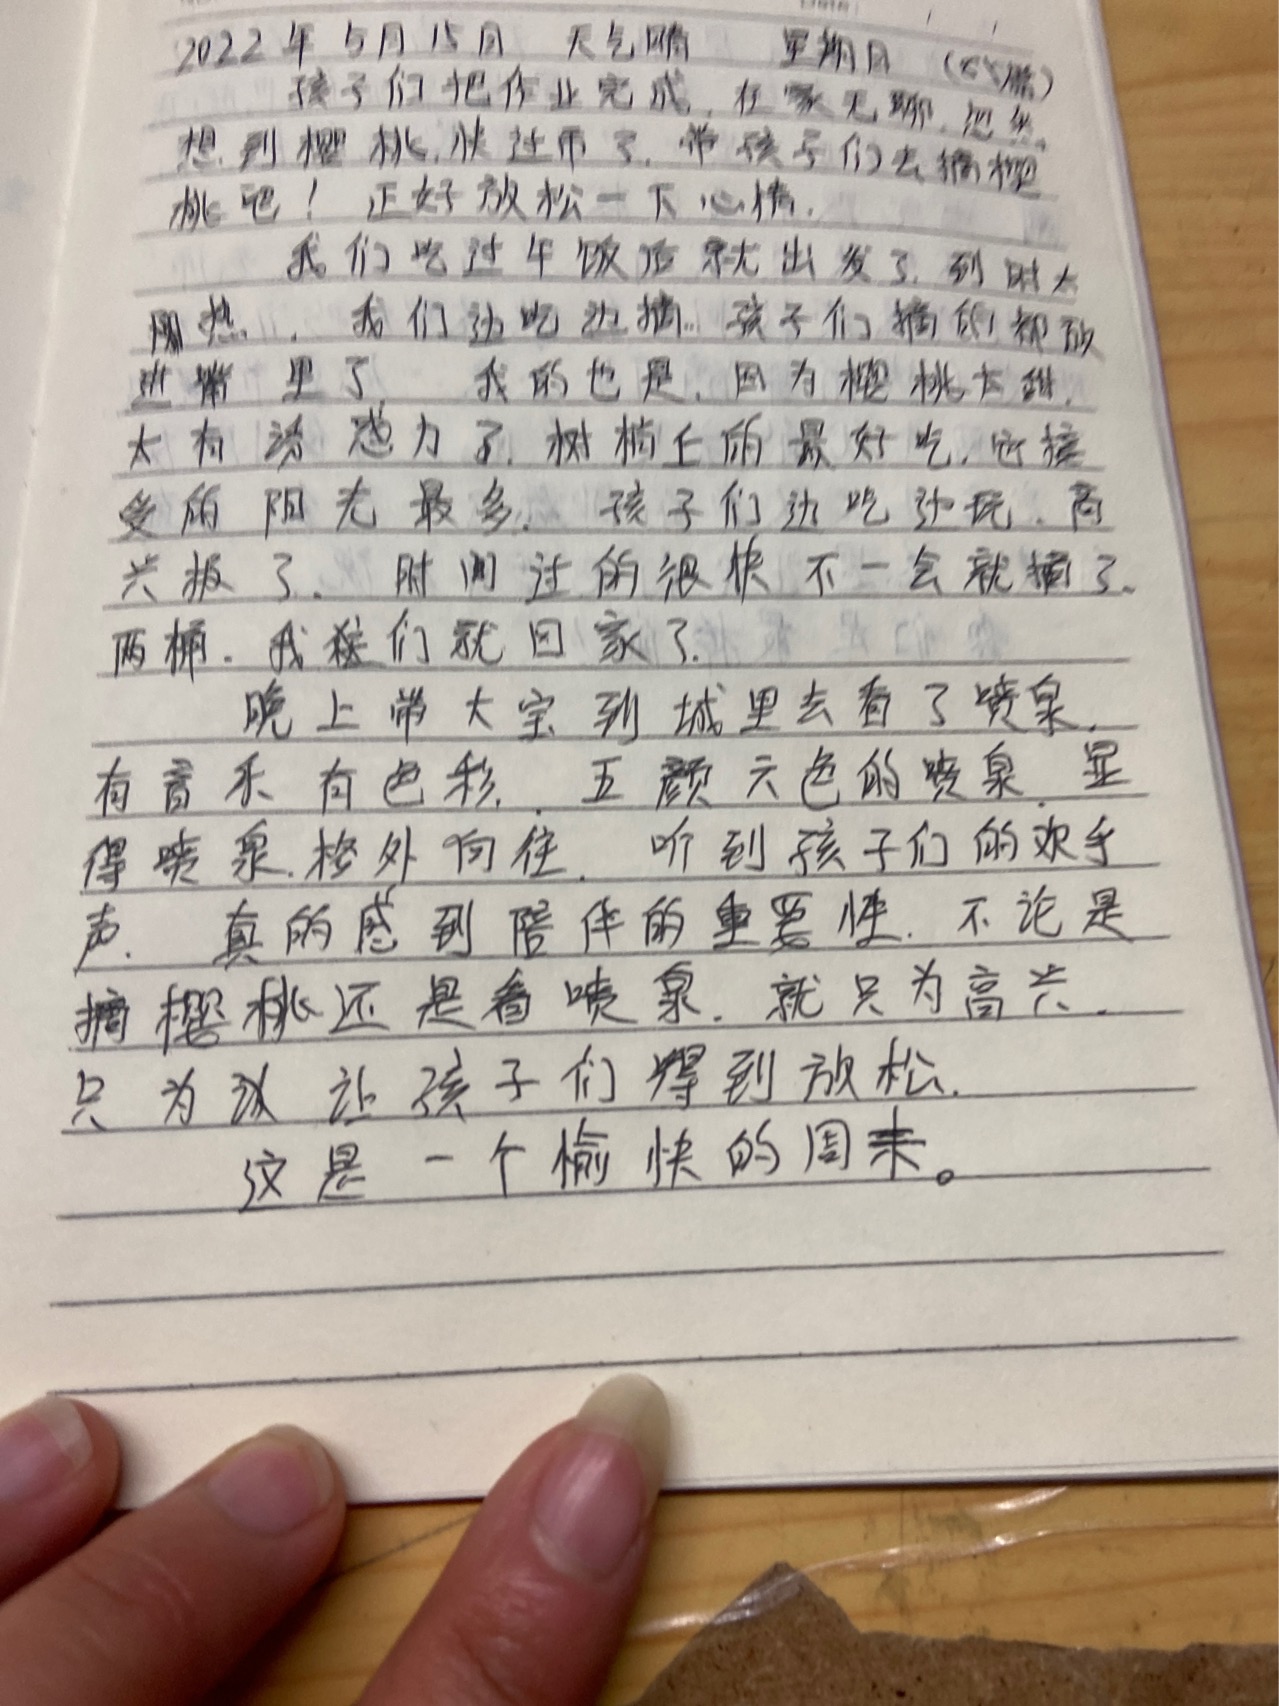 2022年5月15日 天气晴 星期日 (65篇)
孩子们把作业完成,在家无聊,忽然
想到樱桃,快过市了,带孩子们去摘樱
桃吧!正好放松一下心情.
我们吃过午饭后就出发了.到时太
阳热.我们边吃边摘.孩子们摘的都放
进嘴里了 我的也是.因为樱桃太甜.
太有诱惑力了.树梢上的最好吃.它接
受的阳光最多.孩子们边吃边玩.高
兴极了.时间过的很快 不一会就摘了
两桶.我们就回家了.
晚上带大宝到城里去看了喷泉.
有音乐有色彩.五颜六色的喷泉.显
得喷泉.格外向往.听到孩子们的欢乎
声.真的感到陪伴的重要性.不论是
摘樱桃还是看喷泉.就只为高兴.
只为 让孩子们得到放松.
这是一个愉快的周末。